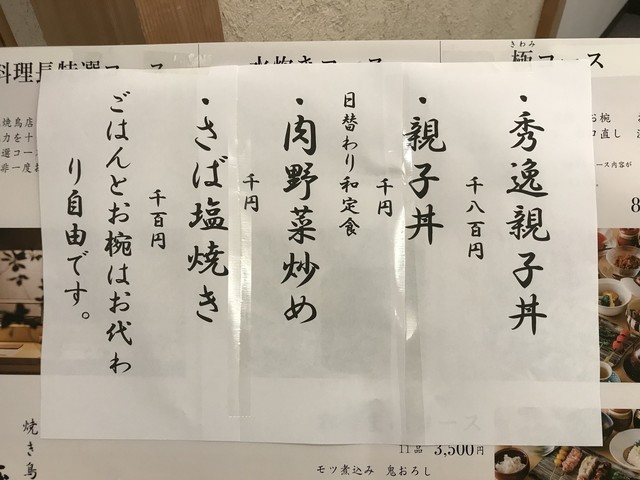 ・秀逸親子丼
千八百円
・親子丼
千円
日替わり和定食
・肉野菜炒め
千円
・さば塩焼き
千百円
ごはんとお椀はお代わ
り自由です。
きわみ
極コース
水炊きコース
料理長特選コース
焼き鳥
11品 3,500円
モツ煮込み 鬼おろし